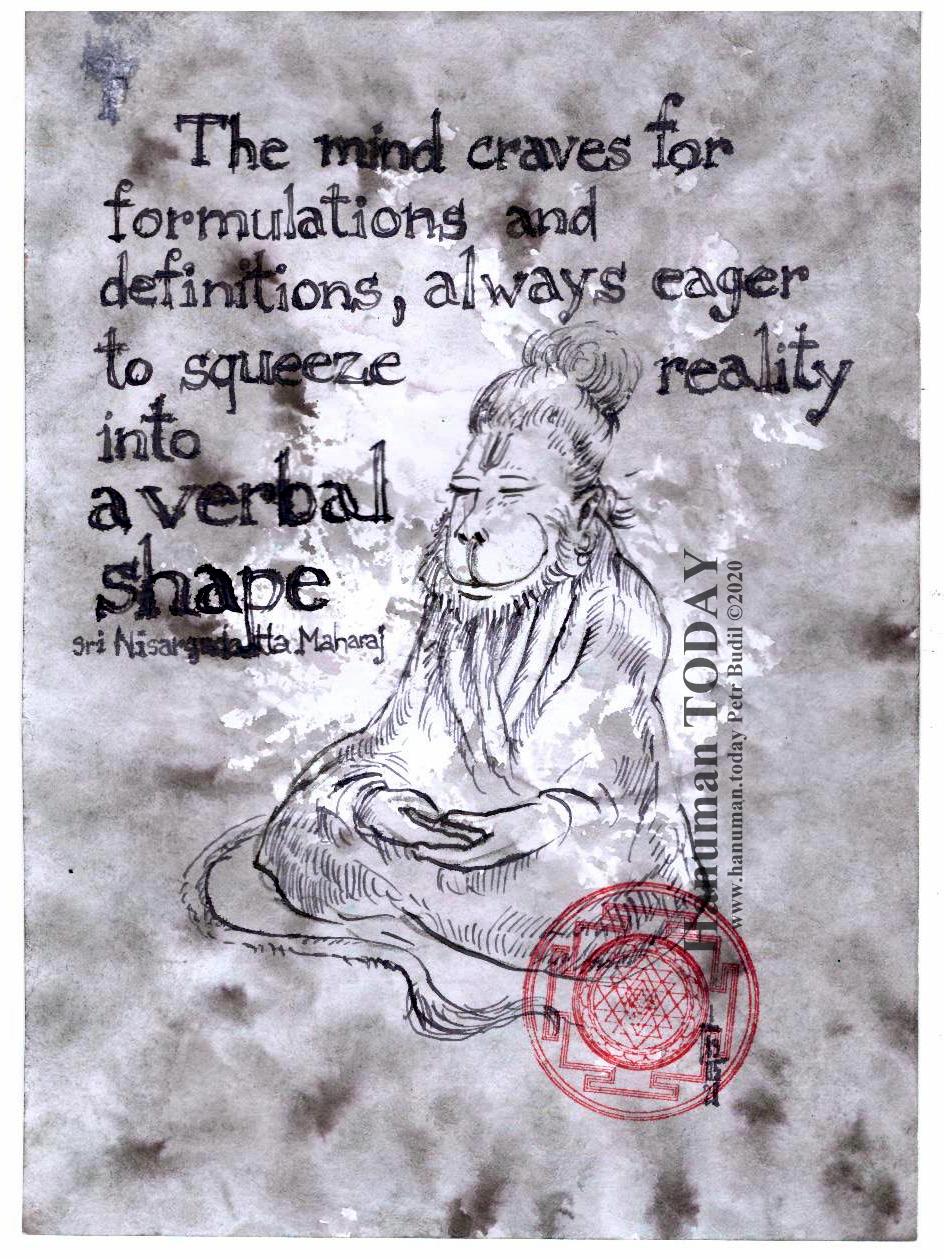 The mind craves for
formulations and
definitions, always eager
to squeeze reality
into
a verbal
shape
sri Nisargadatta Maharaj
Hanuman TODAY
www.hanuman.today Petr Budil ©2020